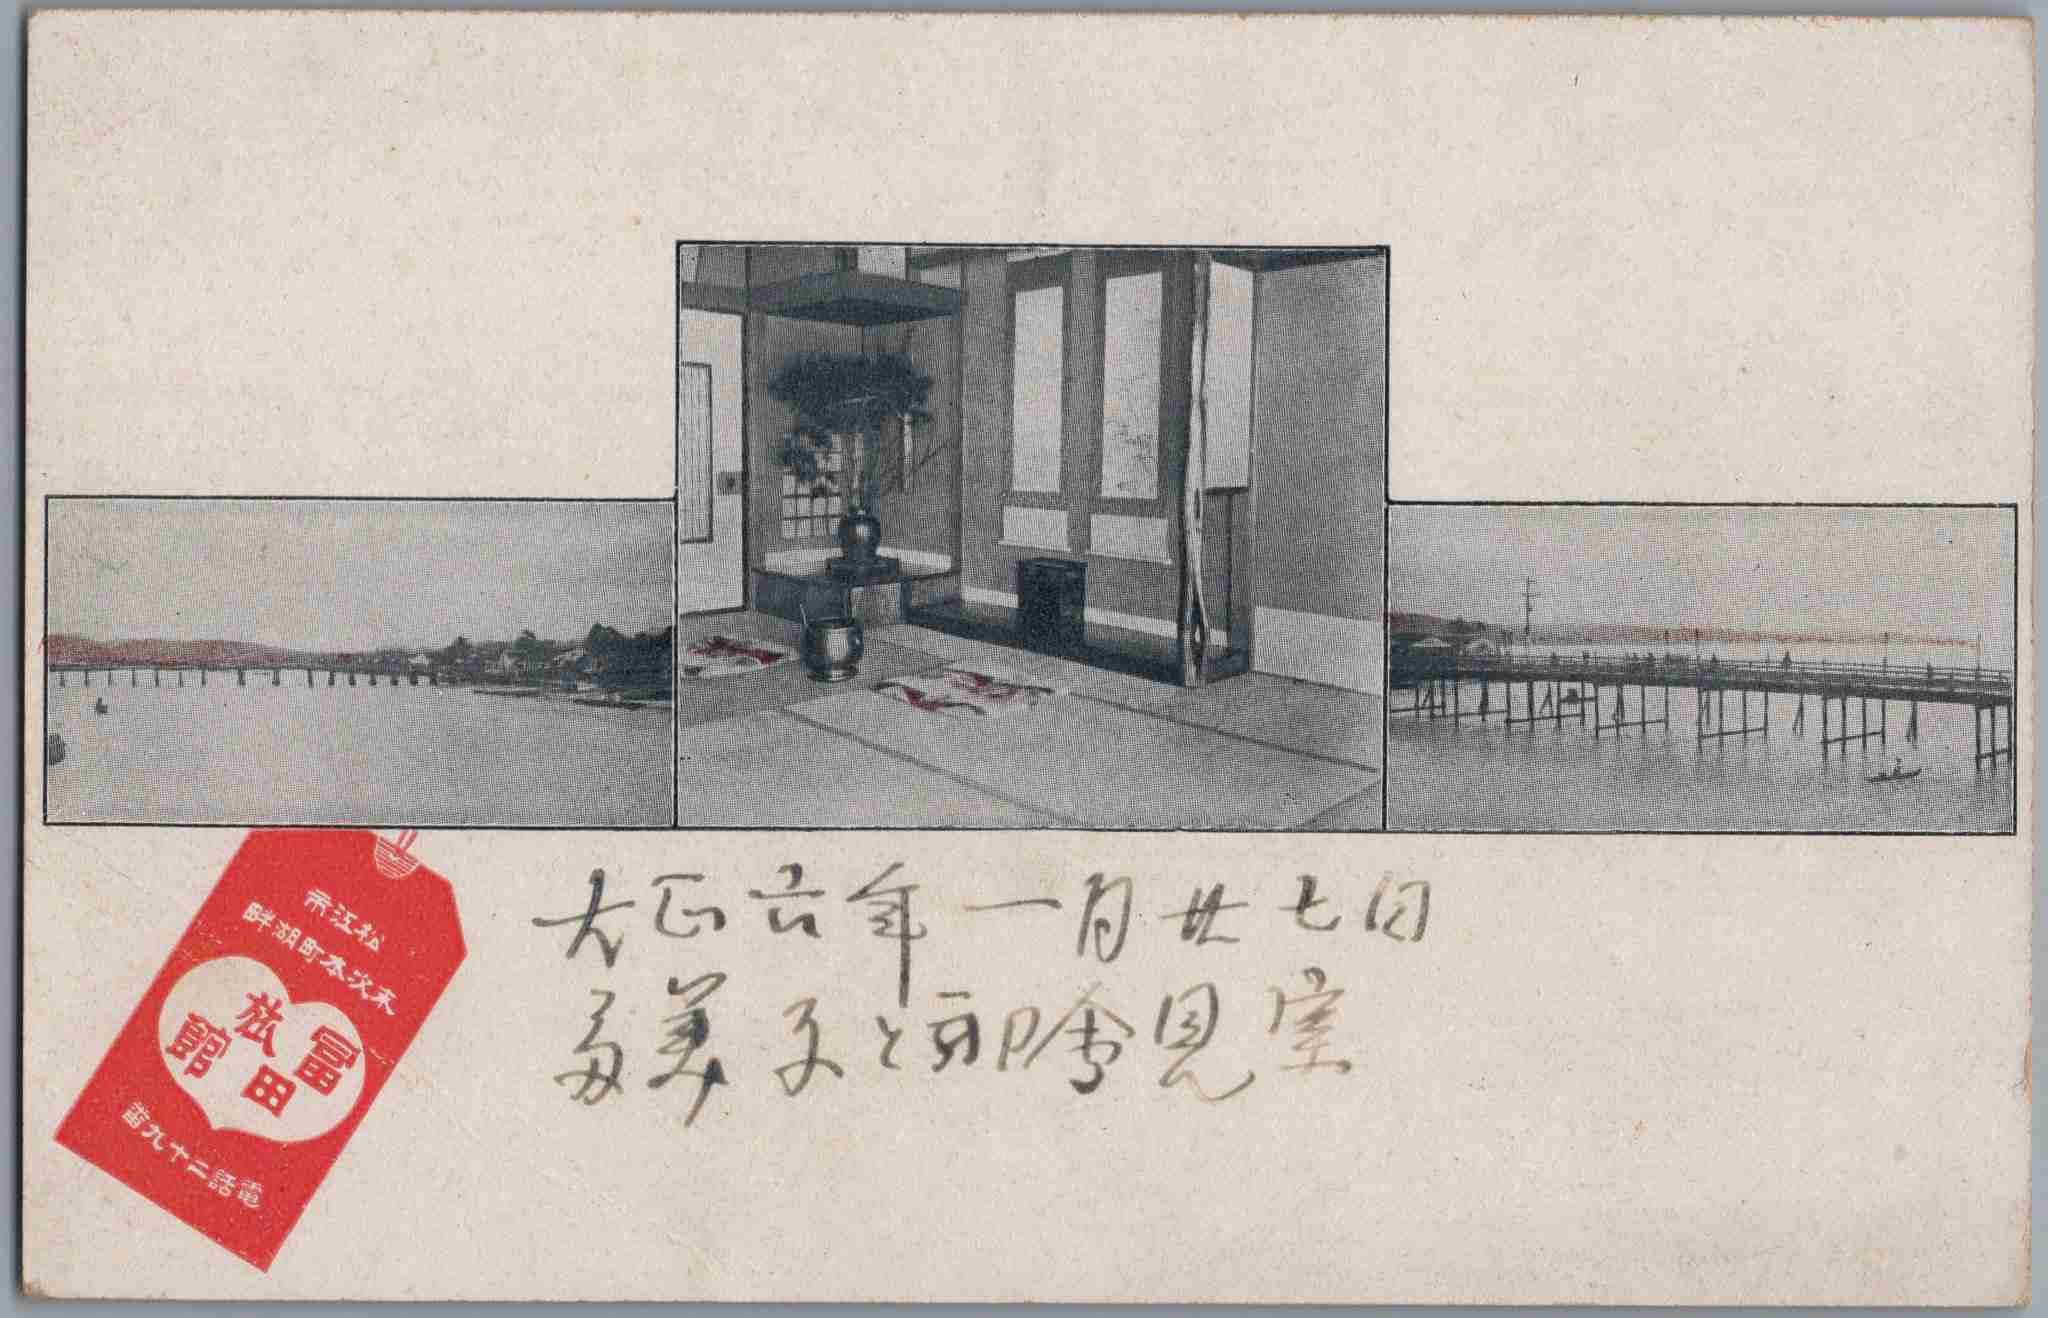 松江市
末次本町湖畔
富田
旅館
電話二十九番
大正六年一月廿七日
多美子と會見室